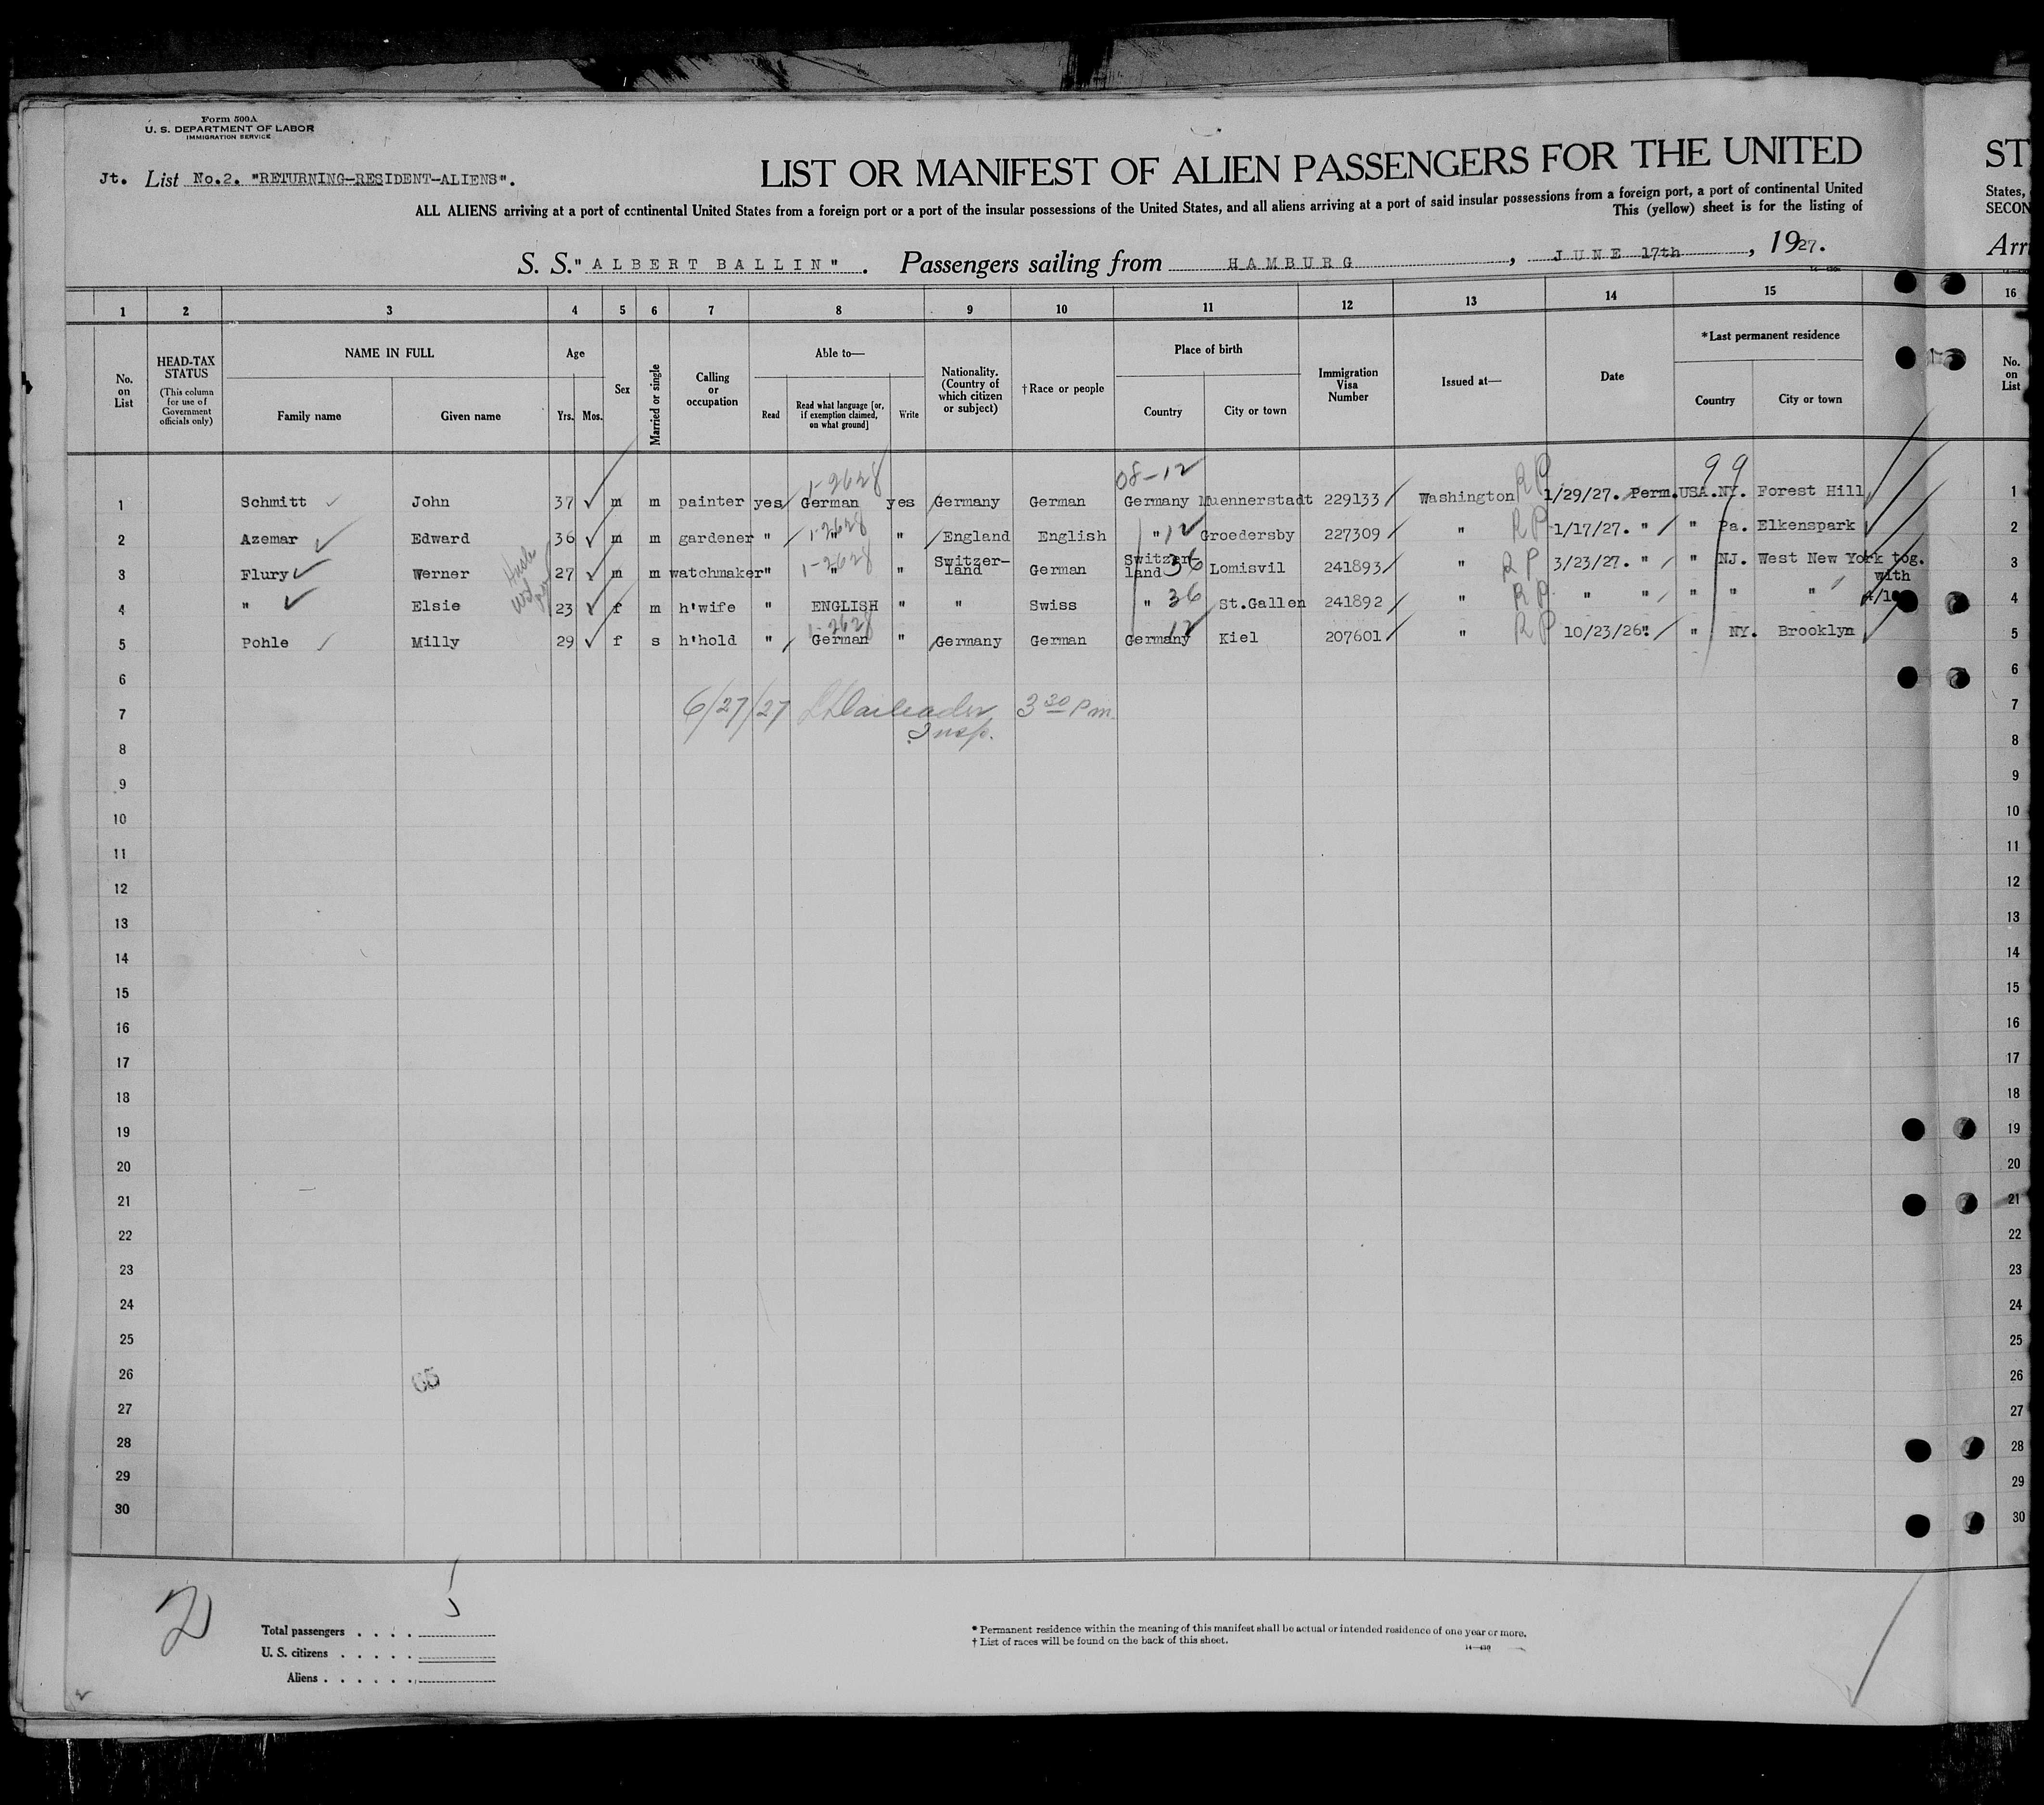 Form 500A
U. S. DEPARTMENT OF LABOR
IMMIGRATION SERVICE
Jt. List No.2. "RETURNING-RESIDENT-ALIENS".
LIST OR MANIFEST OF ALIEN PASSENGERS FOR THE UNITED ST
ALL ALIENS arriving at a port of continental United States from a foreign port or a port of the insular possessions of the United States, and all aliens arriving at a port of said insular possessions from a foreign port, a port of continental United States,
This (yellow) sheet is for the listing of SECON
S. S. "ALBERT BALLIN". Passengers sailing from HAMBURG, JUNE 17th, 1927. Arr
1 2 3 4 5 6 7 8 9 10 11 12 13 14 15 16
No. on List
HEAD-TAX STATUS
(This column for use of Government officials only)
NAME IN FULL
Family name Given name
Age
Yrs. Mos.
Sex
Married or single
Calling or occupation
Able to—
Read
Read what language [or, if exemption claimed, on what ground]
Write
Nationality. (Country of which citizen or subject)
†Race or people
Place of birth
Country City or town
Immigration Visa Number
Issued at—
Date
*Last permanent residence
Country City or town
No. on List
1-2628 08-12 99
1 Schmitt John 37 m m painter yes German yes Germany German Germany Muennerstadt 229133 Washington RP 1/29/27. Perm. USA. NY. Forest Hill 1
2 Azemar Edward 36 m m gardener " 1-2628 " " England English " 12 Groedersby 227309 " RP 1/17/27. " " Pa. Elkenspark 2
3 Flury Werner 27 m m watchmaker " 1-2628 " " Switzer-land German Switzer land 36 Lomisvil 241893 " RP 3/23/27. " " NJ. West New York tog. with 3
4 " Elsie 23 f m h'wife " ENGLISH " " Swiss " 36 St.Gallen 241892 " RP " " " " " 4
5 Pohle Milly 29 f s h'hold " 1-2628 German " Germany German Germany 12 Kiel 207601 " RP 10/23/26. " " NY. Brooklyn 5
6 6
7 6/27/27 Insp. 3 30 Pm. 7
8 8
9 9
10 10
11 11
12 12
13 13
14 14
15 15
16 16
17 17
18 18
19 19
20 20
21 21
22 22
23 23
24 24
25 25
26 65 26
27 27
28 28
29 29
30 30
2
5
Total passengers . . . .
U. S. citizens . . . . .
Aliens . . . . . .
* Permanent residence within the meaning of this manifest shall be actual or intended residence of one year or more.
† List of races will be found on the back of this sheet.
14—430